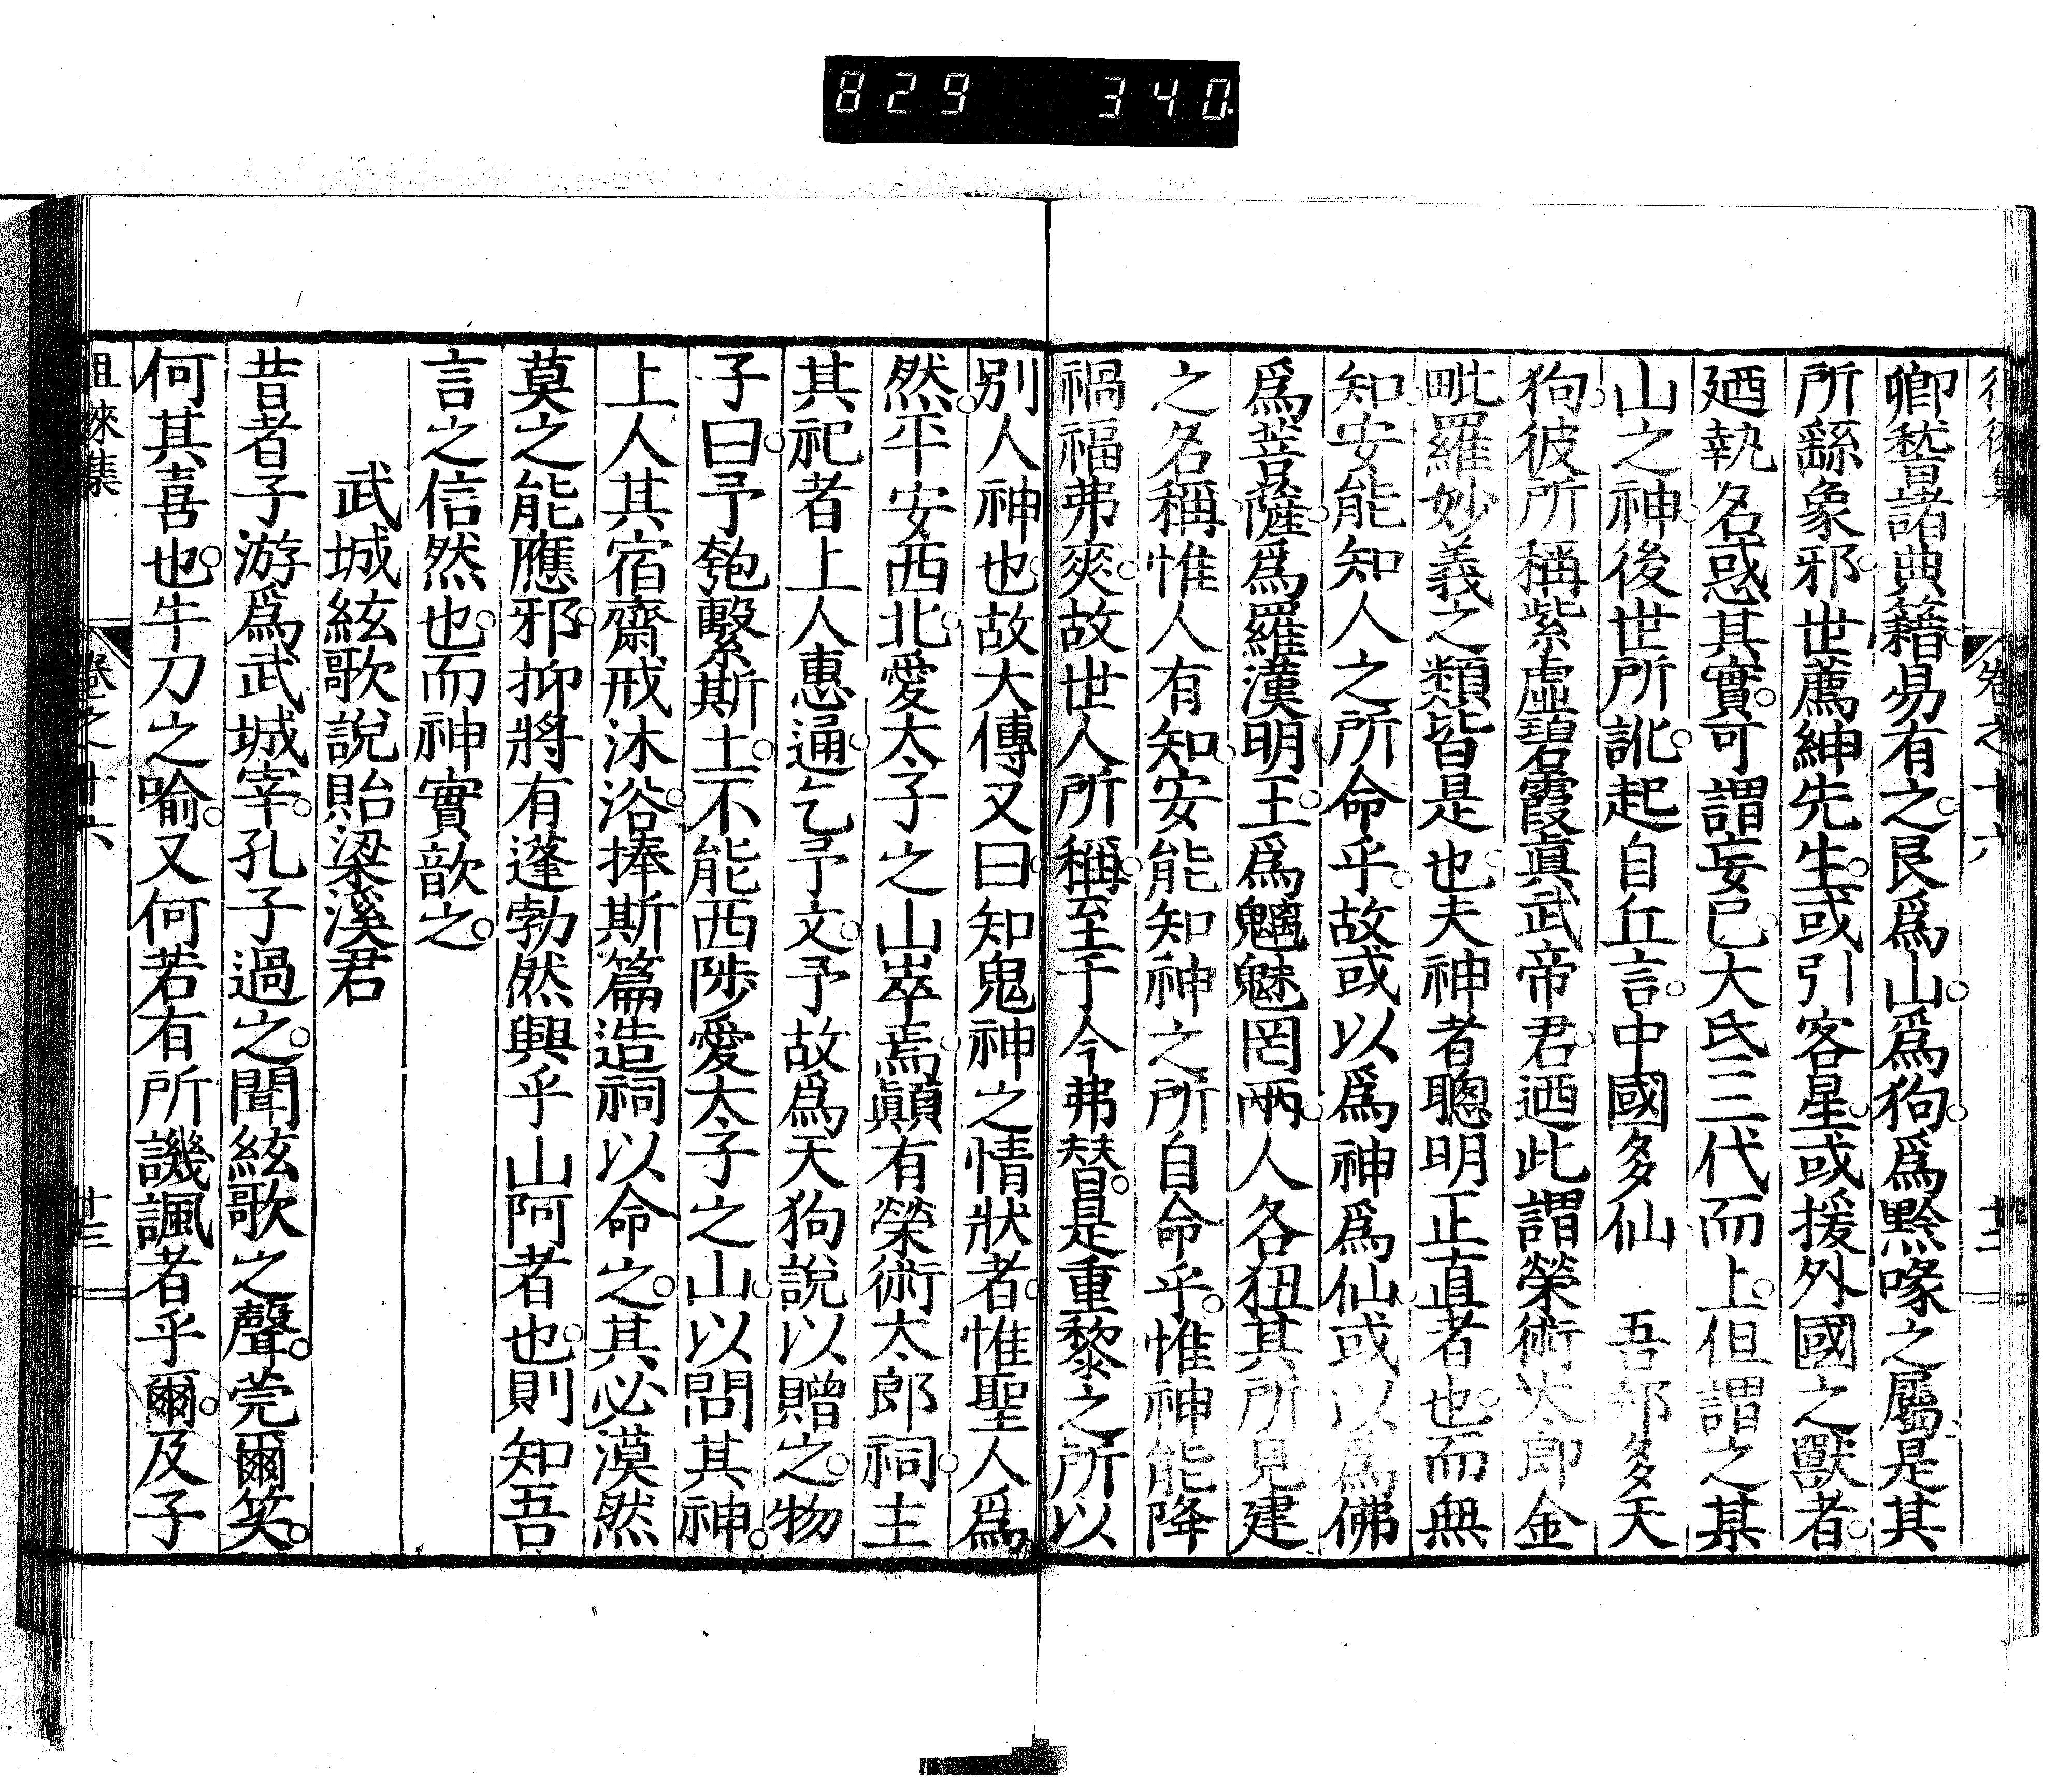 829 340
卿嵆諸典籍易有之艮爲山爲狗爲黔喙之屬是其
所繇象邪世薦紳先生或引客星或援外國之獸者
廼執名惑其實可謂妄已大氐三代而上但謂之某
山之神後世所訛起自丘言中國多仙 吾邦多天
狗彼所稱紫虛碧霞眞武帝君廼此謂榮術太郎金
毗羅妙義之類皆是也夫神者聰明正直者也而無
知安能知人之所命乎故或以爲神爲仙或以爲佛
爲菩薩爲羅漢明王爲魑魅罔兩人各狃其所見建
之名稱惟人有知安能知神之所自命乎惟神能降
禍福弗爽故世人所稱至于今弗替是重黎之所以
別人神也故大傳又曰知鬼神之情狀者惟聖人爲
然平安西北愛太子之山崒焉顛有榮術太郎祠主
其祀者上人惠通乞予文予故爲天狗說以贈之物
子曰予匏繫斯土不能西陟愛太子之山以問其神
上人其宿齋戒沐浴捧斯篇造祠以命之其必漠然
莫之能應邪抑將有蓬勃然興乎山阿者也則知吾
言之信然也而神實歆之
武城絃歌說貽梁溪君
昔者子游爲武城宰孔子過之聞絃歌之聲莞爾笑
何其喜也牛刀之喻又何若有所譏諷者乎爾及子
徂徠集 卷之十六 廿三